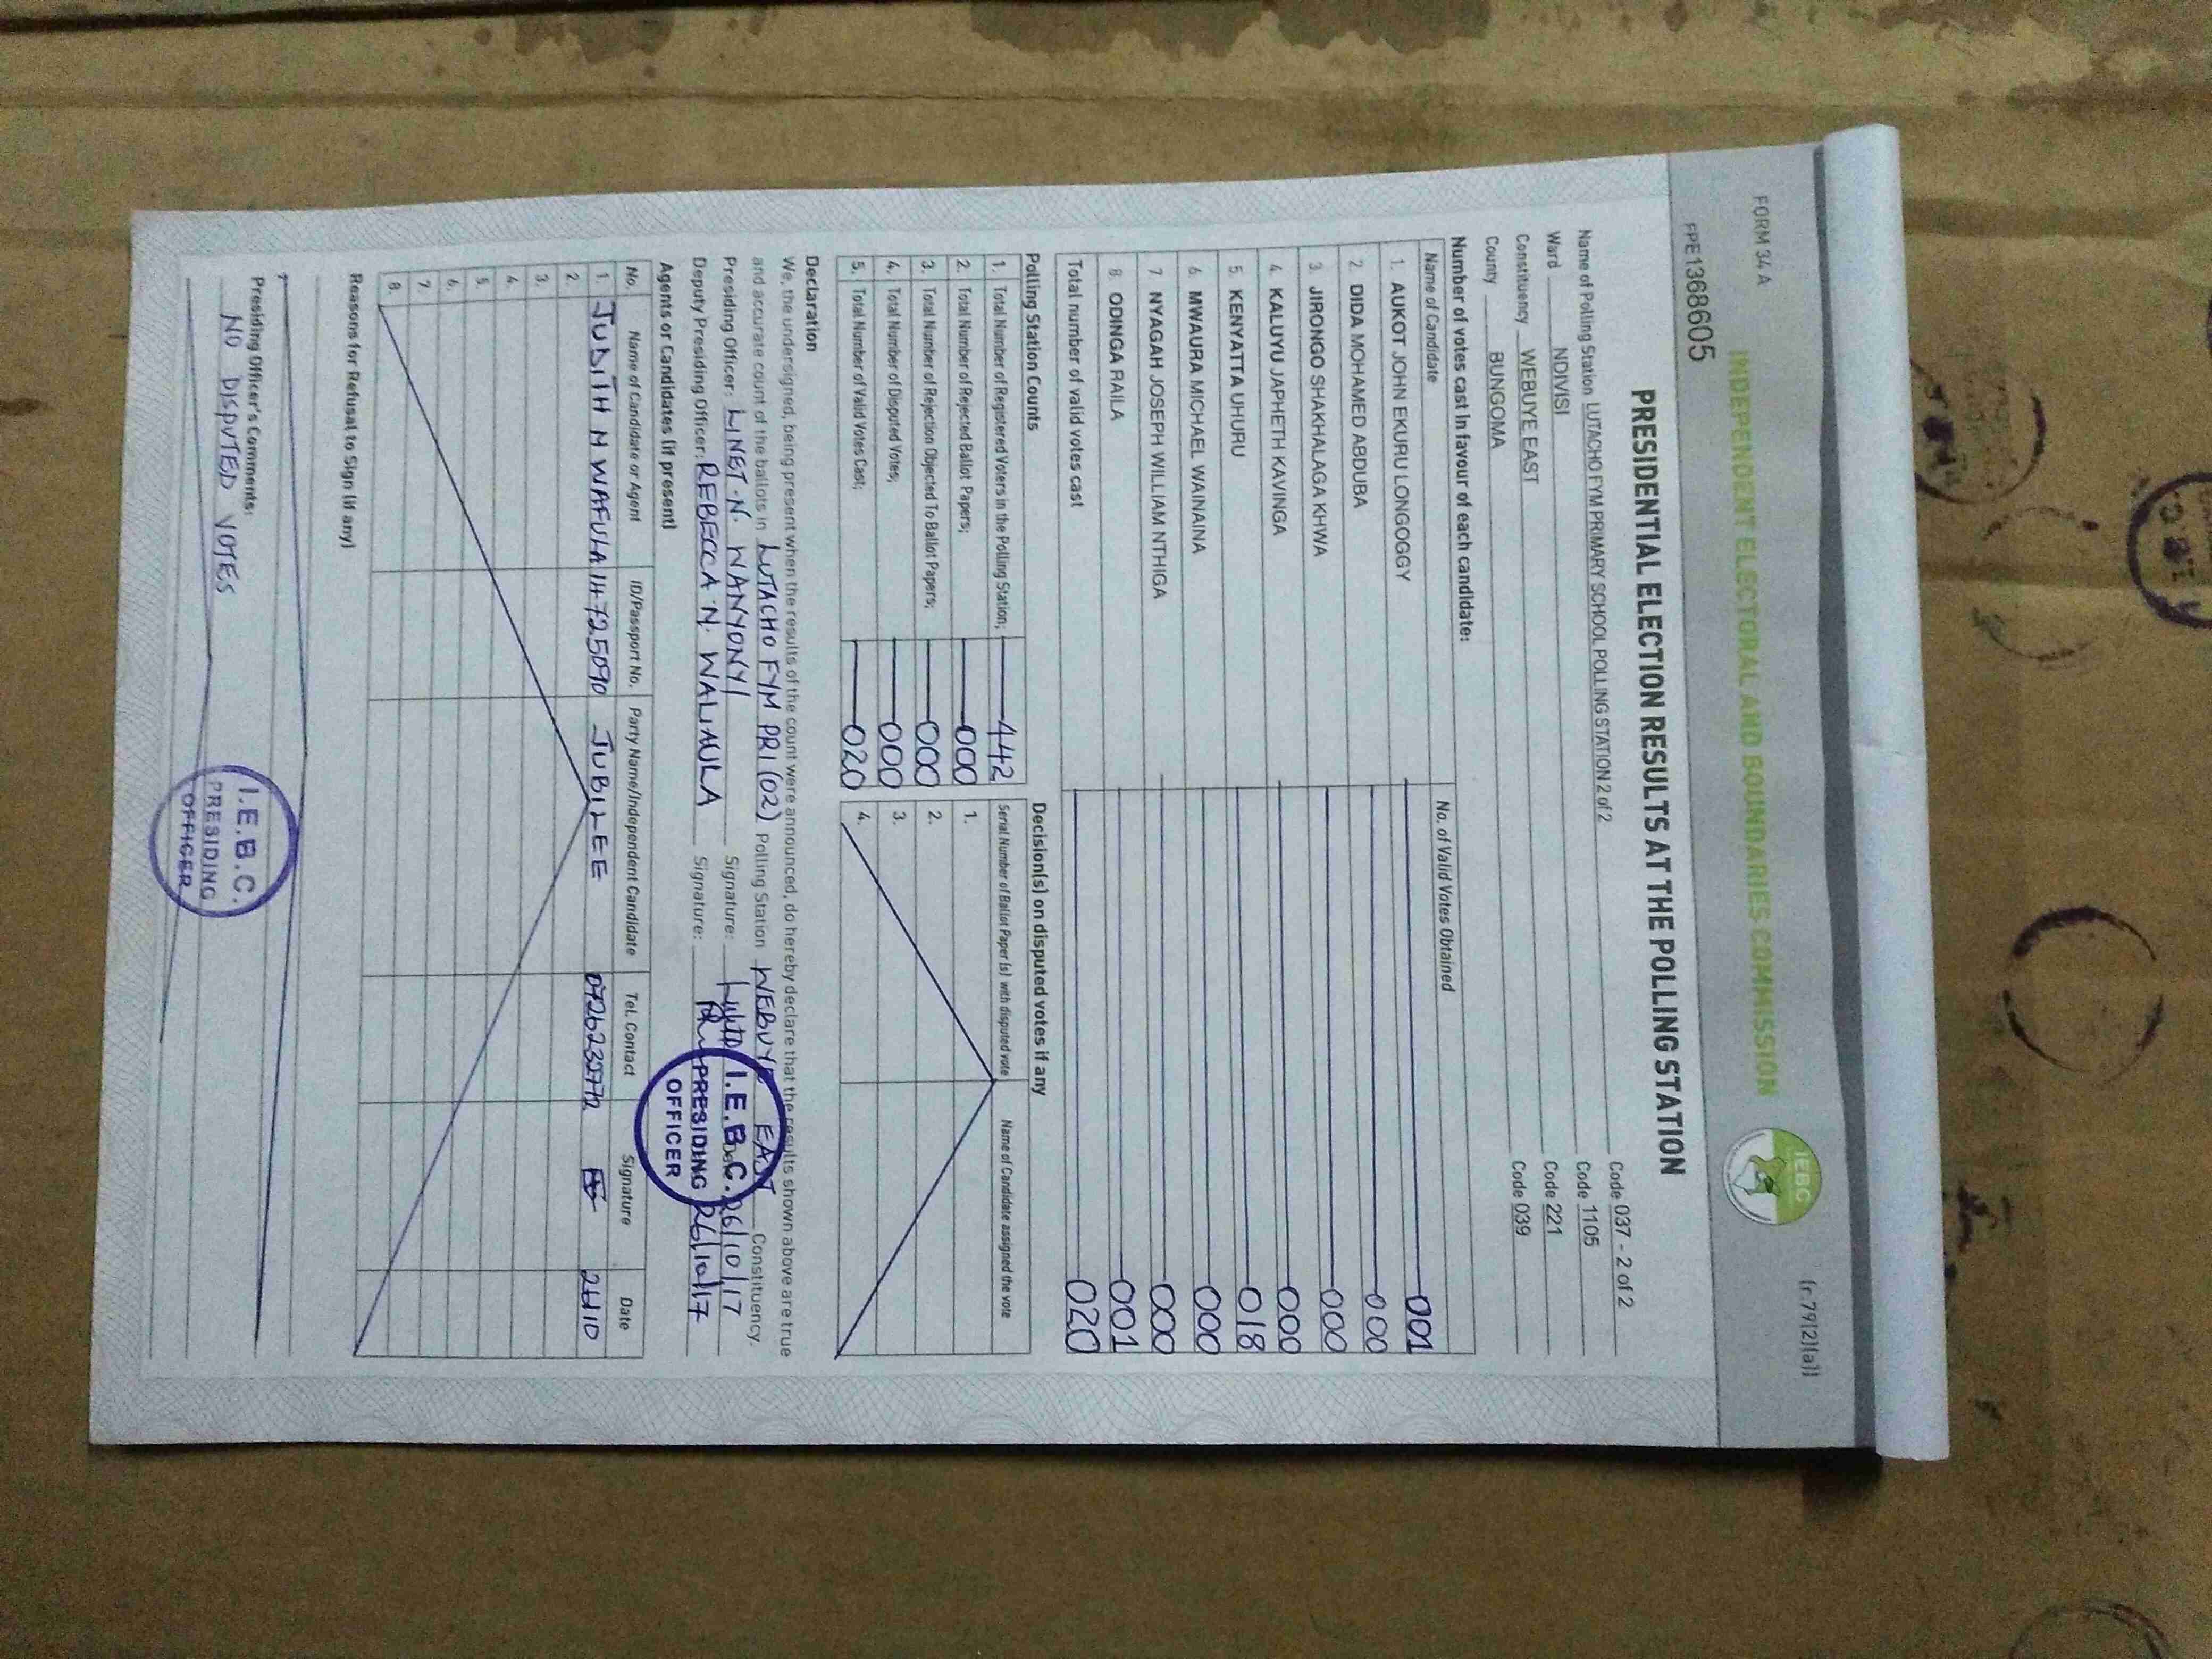 FORM 34 A
(r.79(2)(a))
INDEPENDENT ELECTORAL AND BOUNDARIES COMMISSION
IEBC
FPE1368605
PRESIDENTIAL ELECTION RESULTS AT THE POLLING STATION
Name of Polling Station LUTACHO FYM PRIMARY SCHOOL POLLING STATION 2 of 2 Code 037 - 2 of 2
Ward NDIVISI Code 1105
Constituency WEBUYE EAST Code 221
County BUNGOMA Code 039
Number of votes cast in favour of each candidate:
Name of Candidate No. of Valid Votes Obtained
1. AUKOT JOHN EKURU LONGOGGY 001
2. DIDA MOHAMED ABDUBA 000
3. JIRONGO SHAKHALAGA KHWA 000
4. KALUYU JAPHETH KAVINGA 000
5. KENYATTA UHURU 018
6. MWAURA MICHAEL WAINAINA 000
7 NYAGAH JOSEPH WILLIAM NTHIGA 000
8. ODINGA RAILA 001
Total number of valid votes cast 020
Polling Station Counts
1. Total Number of Registered Voters in the Polling Station; 442
2. Total Number of Rejected Ballot Papers; 000
3. Total Number of Rejection Objected To Ballot Papers; 000
4. Total Number of Disputed Votes; 000
5. Total Number of Valid Votes Cast; 020
Decision(s) on disputed votes if any
Serial Number of Ballot Paper (s) with disputed vote Name of Candidate assigned the vote
1.
2.
3.
4.
Declaration
We, the undersigned, being present when the results of the count were announced, do hereby declare that the results shown above are true
and accurate count of the ballots in LUTACHO FYM PRI (02) Polling Station WEBUYE EAST Constituency.
Presiding Officer: LINET N. WANYONYI Signature: 26/10/17
Deputy Presiding Officer: REBECCA N. WALIAULA Signature: 26/10/17
I.E.B.C.
PRESIDING
OFFICER
Agents or Candidates (if present)
No. Name of Candidate or Agent ID/Passport No. Party Name/Independent Candidate Tel. Contact Signature Date
1. JUDITH N WAFULA 14725090 JUBILEE
2.
3.
4.
5.
6.
7.
8.
Reasons for Refusal to Sign (if any)
Presiding Officer's Comments:
NO DISPUTED VOTES
I.E.B.C.
PRESIDING
OFFICER